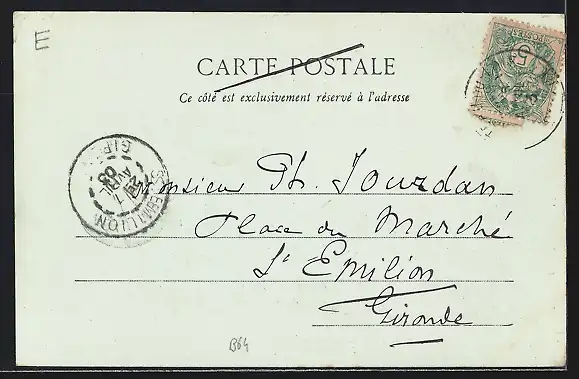 E
CARTE POSTALE
Ce côté est exclusivement réservé à l'adresse
Monsieur Ph. Jourdan
Place du Marché
St Emilion
Gironde
ST EMILION
AVRIL
03
B64